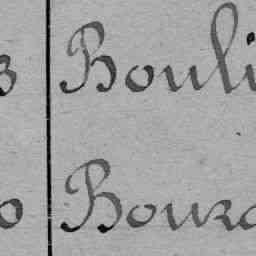 3 Bouli
0 Bouza